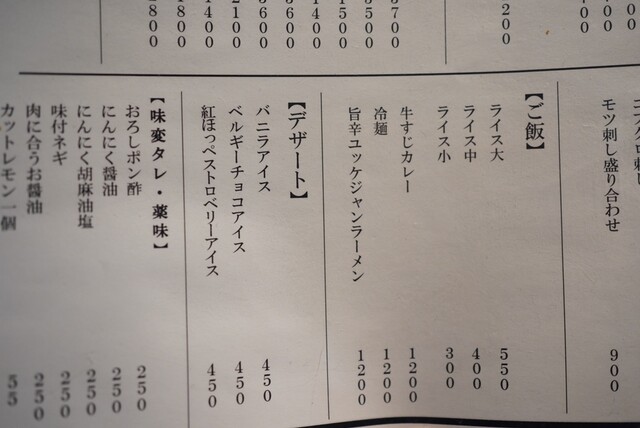 モツ刺し盛り合わせ 900
【ご飯】
ライス大 550
ライス中 400
ライス小 300
牛すじカレー 1200
冷麺 1200
旨辛ユッケジャンラーメン 1200
【デザート】
バニラアイス 450
ベルギーチョコアイス 450
紅ほっぺストロベリーアイス 450
【味変タレ・薬味】
おろしポン酢 250
にんにく醤油 250
にんにく胡麻油塩 250
味付ネギ 250
肉に合うお醤油 250
カットレモン一個 55